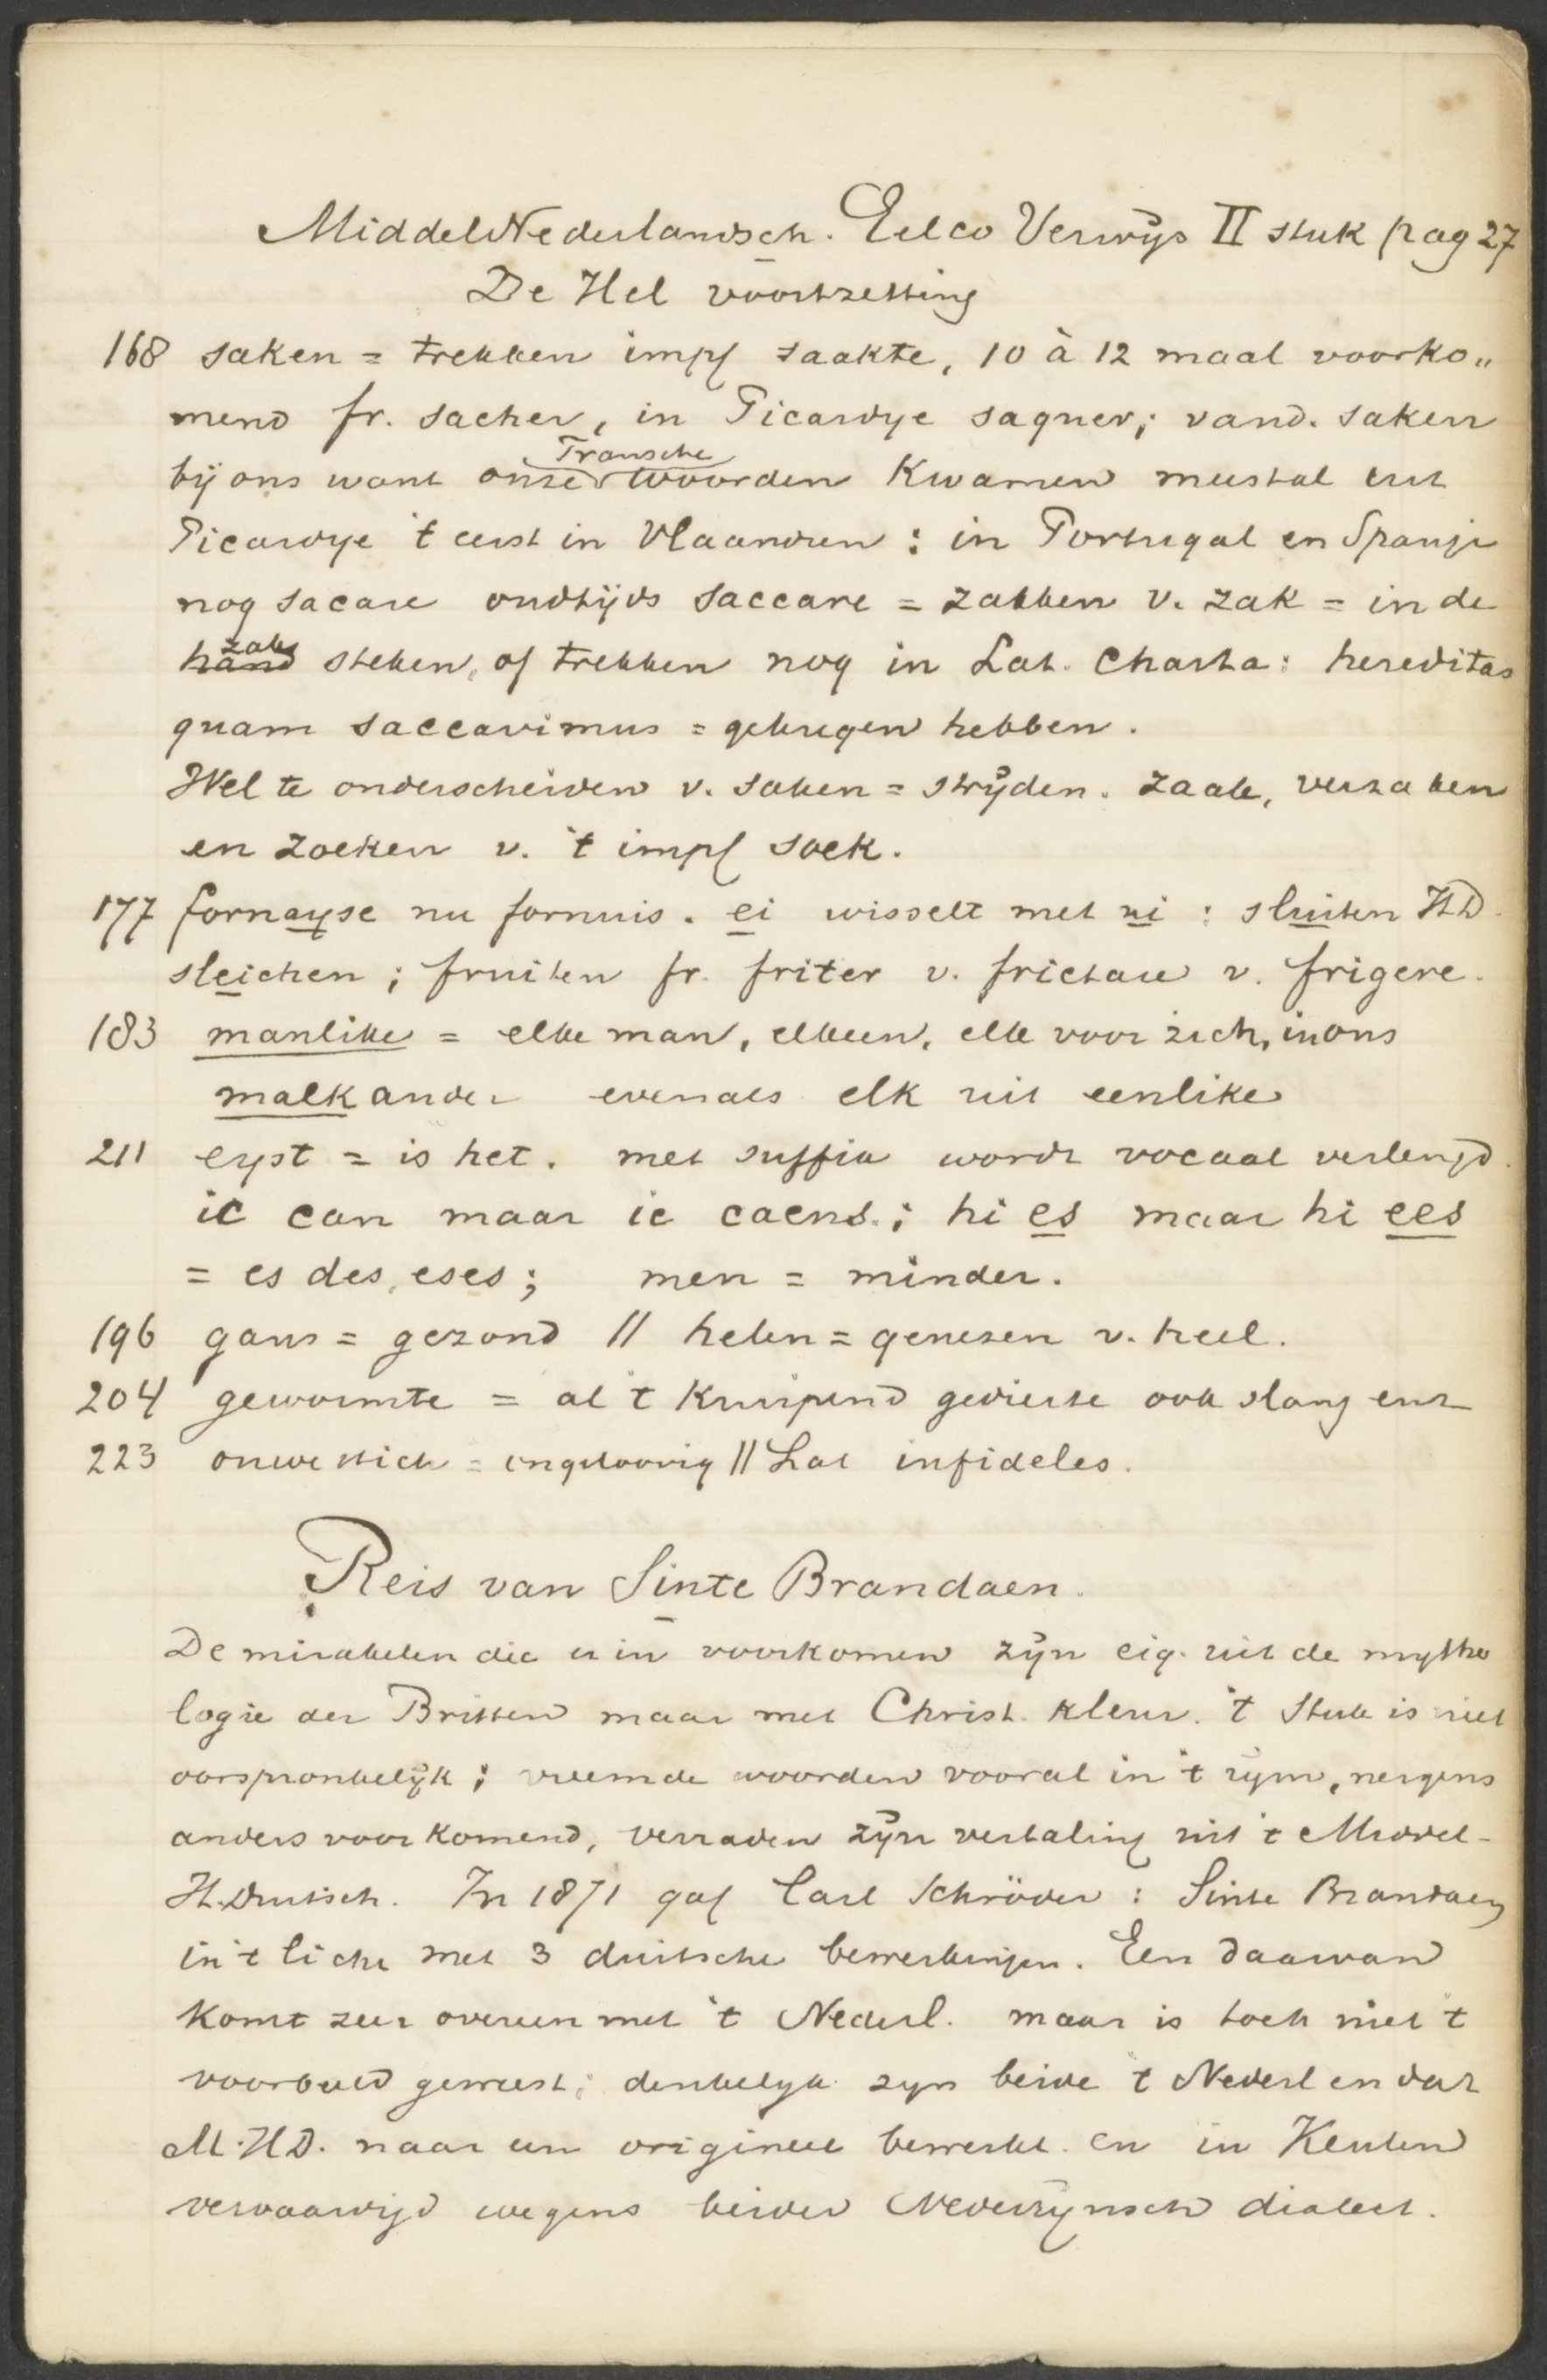 MiddelNederlandsch. Eelco Verwijs II stuk pag 27
De Hel voortzetting
168 saken = trekken impf saakte, 10 à 12 maal voorko„
mend fr. sacher, in Picardye saquer; vand. saken
bij ons want onze Fransche woorden kwamen meestal uit
Picardye 't eerst in Vlaandren: in Portugal en Spanje
nog sacare oudtijds saccare = zakken v. zak = in de
hand zak steken, of trekken nog in Lat. Charta: hereditas
quam saccavimus = gekregen hebben.
Wel te onderscheiden v. saken = strijden. zaak, verzaken
en zoeken v. 't impf soek.
177 fornayse nu fornuis. ei wisselt met ui: sluiten HD.
sleichen; fruiten fr. friter v. frictare v. frigere.
183 manlike = elke man, elkeen, elk voor zich, in ons
malkander evenals elk uit eenlike
211 eyst = is het. met suffix wordt vocaal verlengd.
ic can maar ic caens.; hi es maar hi ees
= es des, eses; men = minder.
196 gans = gezond // helen = genezen v. heel.
204 gewormte = al 't kruipend gedierte ook slang enz
223 onwettich = ongeloovig // Lat infideles.
Reis van Sinte Brandaen.
De mirakelen die er in voorkomen zijn eig. uit de mytho
logie der Britten maar met Christ. kleur. 't Stuk is niet
oorspronkelijk; vreemde woorden vooral in 't rijm, nergens
anders voorkomend, verraden zijn vertaling uit 't Middel-
H.Duitsch. In 1871 gaf Carl Schröder: Sinte Brandaen
in 't licht met 3 duitsche bewerkingen. Een daarvan
komt zeer overeen met 't Nederl. maar is toch niet 't
voorbeeld geweest; denkelijk zijn beide 't Nederl en dat
M.H.D. naar een origineel bewerkt en in Keulen
vervaardigd wegens beider Nederrijnsch dialect.